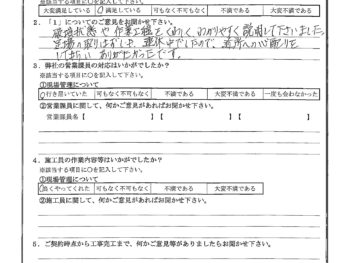 ※該当する項目に○を記入して下さい。
大変満足している ○満足している 可も不可もなく 不満である 大変不満である
2．「1」についてのご意見をお聞かせ下さい。
破損状態や作業工程をくわしく、わかりやすく説明して下さいました。
してもらい ありがたかったです。
3．弊社の営業課員の対応はいかがでしたか？
※該当する項目に○を記入して下さい。
①現場管理について
○行き届いていた 可も不可もなく 不満である 大変不満である 一度も会わなかった
②営業課員に関して、何かご意見があればお聞かせ下さい。
営業課員名【 】【 】【 】
4．施工員の作業内容等はいかがでしたか？
※該当する項目に○を記入して下さい。
①現場管理について
○良くやってくれた 可も不可もなく 不満である 大変不満である
②施工員に関して、何かご意見があればお聞かせ下さい。
5．ご契約時点から工事完工まで、何かご意見等がありましたらお聞かせ下さい。